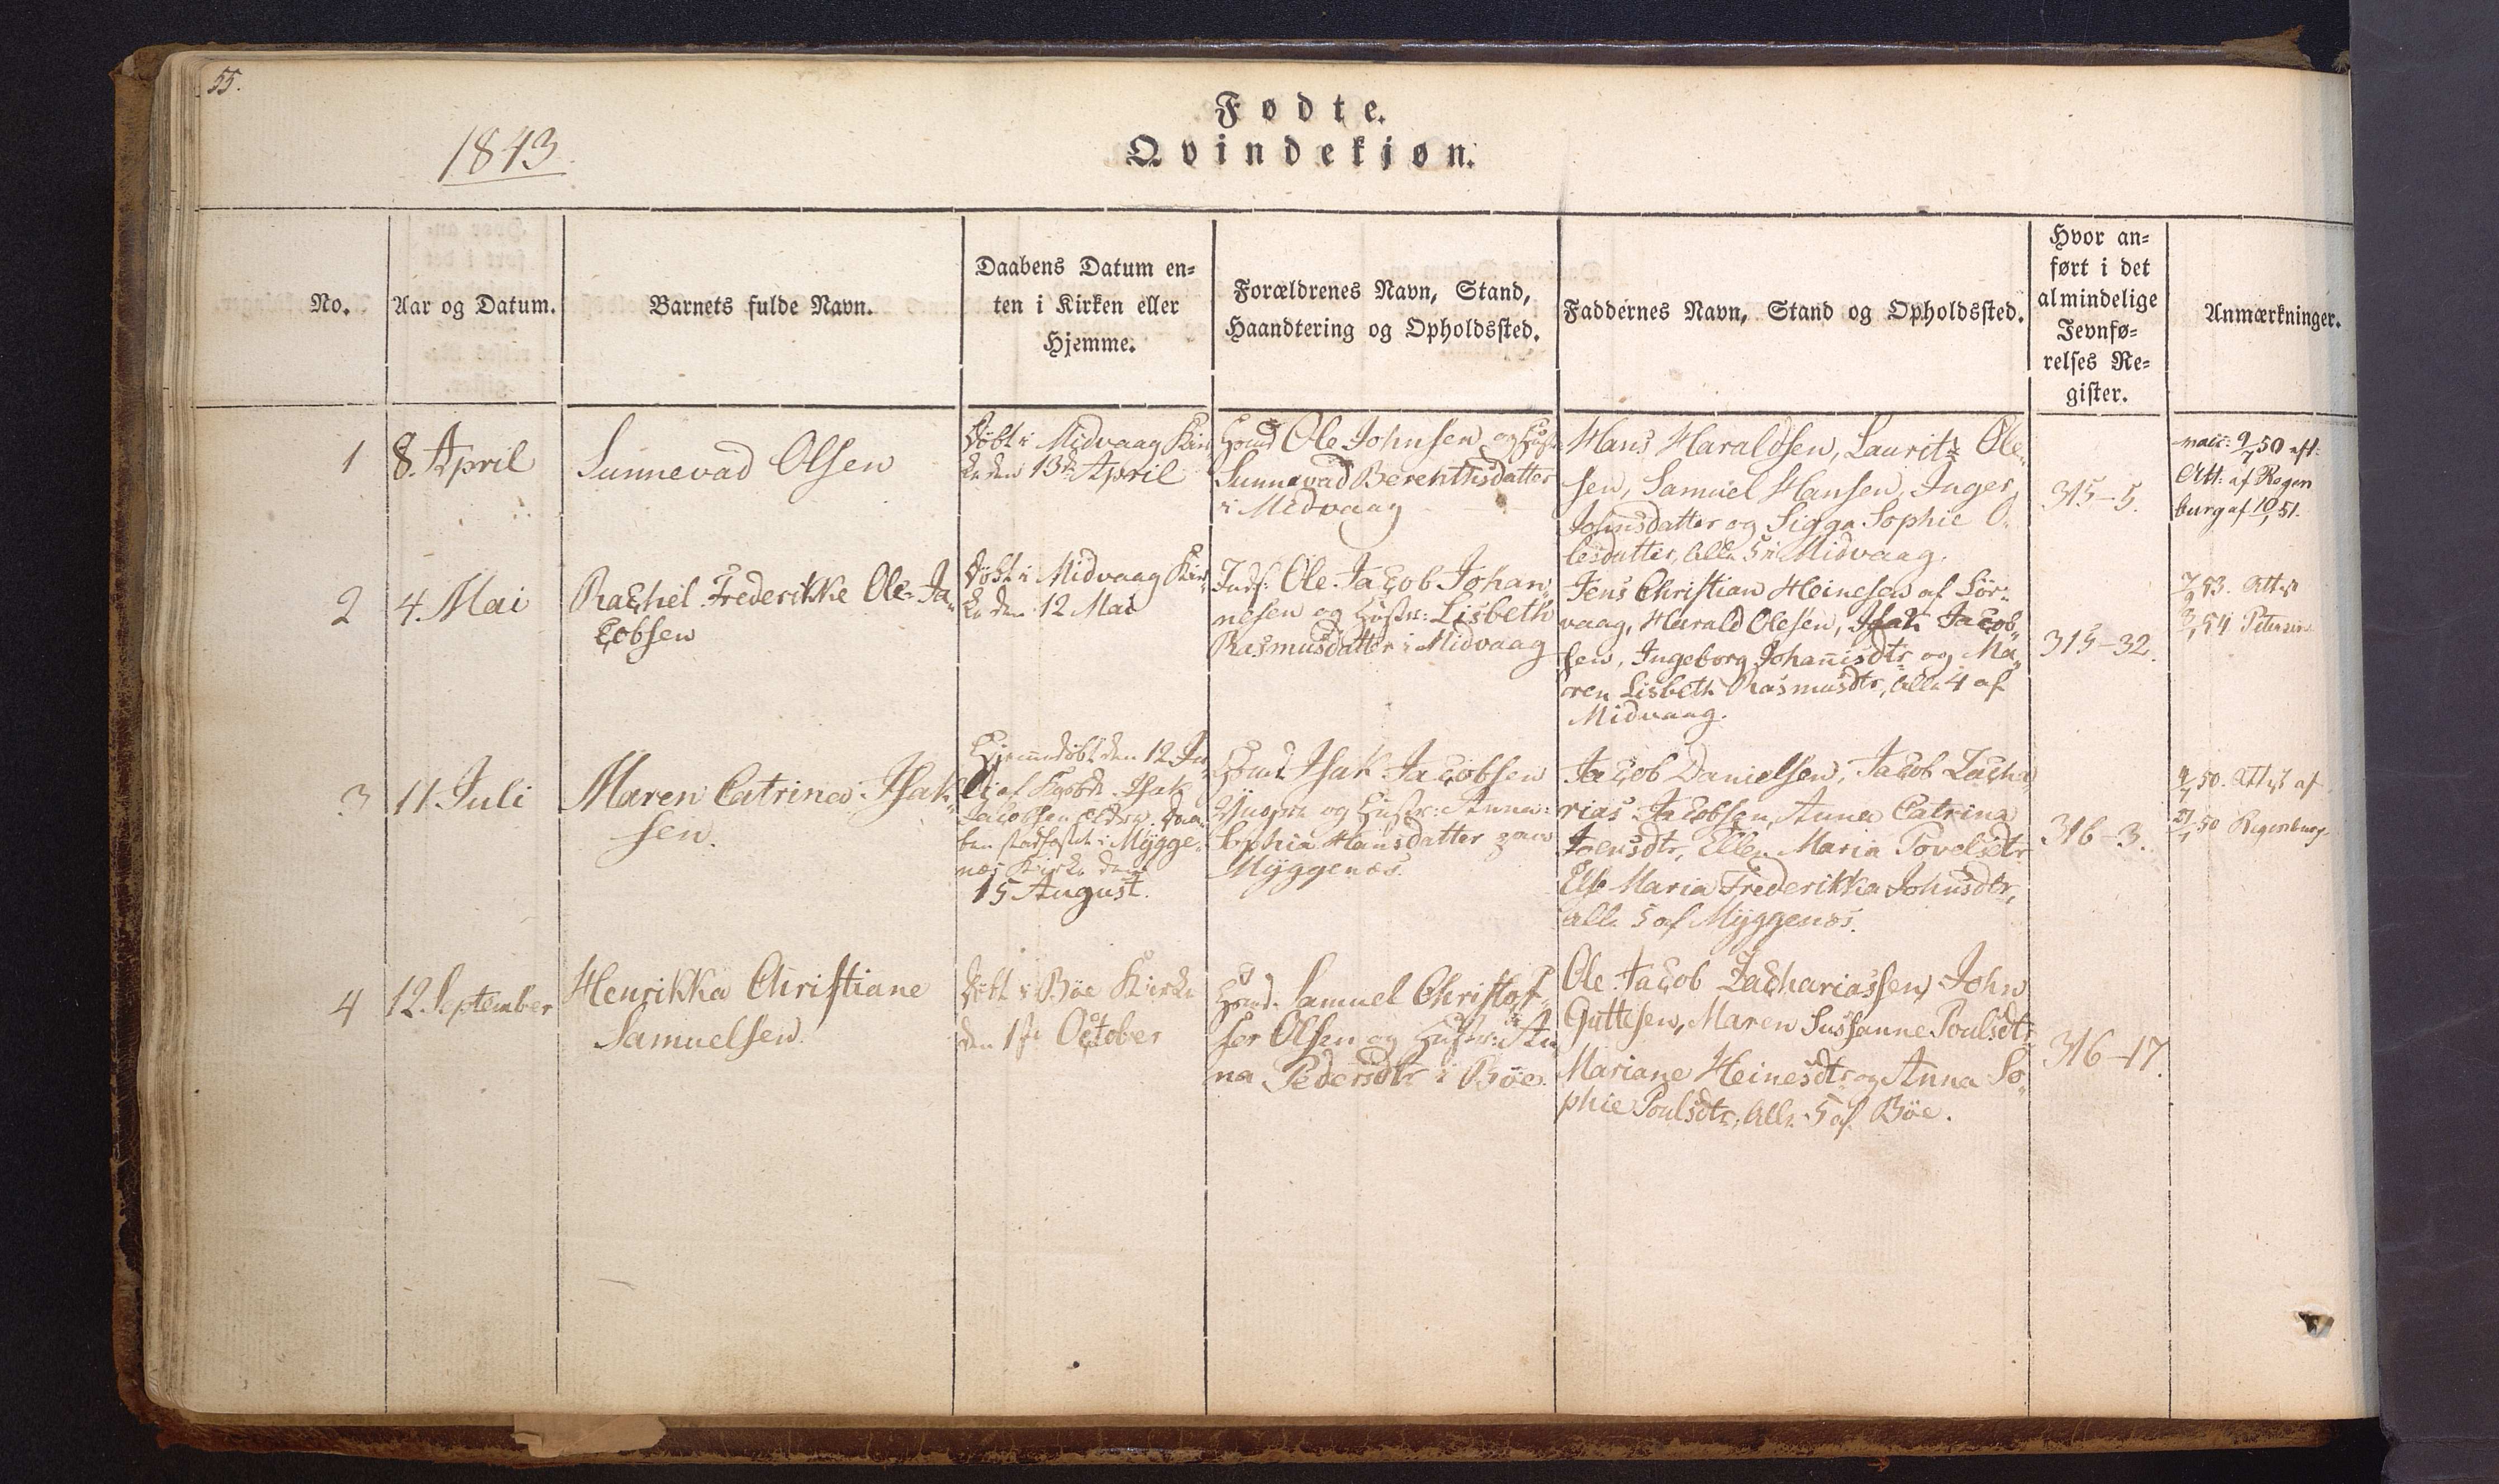 55.
Fødte.
Qvindekjøn.
1843.
No.
Aar og Datum.
Barnets fulde Navn.
Daabens Datum en-
ten i Kirken eller
Hjemme.
Forældrenes Navn, Stand,
Haandtering og Opholdssted.
Faddernes Navn, Stand og Opholdssted.
Hvor an-
ført i det
almindelige
Jevnfø-
relses Re-
gister.
Anmærkninger.
1
8. April
Sunnevad Olsen
Döbt i Midvaag Kir-
ke den 13de April
Ole Johnsen og
Sunnevad Berenthsdatter
i Midvaag
Hans Haraldsen, Lauritz Ole-
sen, Samuel Hansen, Inger
Johnsdatter og Sigga Sophie O-
lesdatter, alle 5 i Midvaag.
315-5.
vacc: 9/7 50 aft:
Att: af Regen
burg af 10/1 51.
2
4. Mai
Rachel Frederikke Ole-Ja-
cobsen
Döbt i Midvaag Kir-
ke den 12 Mai
Ole Jacob Johan-
nesen og Hustr: Lisbeth
Rasmusdatter i Midvaag
Jens Christian Heinesen af Sör-
vaag, Harald Olesen, Isak Jacob-
sen, Ingeborg Johannisdtr og Ma-
ren Lisbeth Rasmusdtr, alle 4 af
Midvaag.
315-32.
Attest
Petersen
3
11. Juli
Maren Catrina Isak-
sen.
Hjemmedöbt den 12 Ju-
li af Isak
Jacobsen ældre. Daa-
ben stadfæstet i Mygge-
næs Kirke den
15 August.
Isak Jacobsen
Yngre og Hustr: Anna
Sophia Hansdatter paa
Myggenæs.
Jacob Danielsen, Jacob Zacha-
rias Jacobsen, Anna Catrina
Joensdtr, Ellen Maria Povelsdtr
Else Maria Frederikka Johnsdtr,
alle 5 af Myggenæs.
316-3.
9/7 50. Attest af
50 Regenburg
4
12. September
Henrikka Christiane
Samuelsen.
Döbt i Böe Kirke
den 1ste October
Samuel Christof-
fer Olsen og Hustr: An-
na Pedersdtr i Böe.
Ole Jacob Zachariassen, John
Guttesen, Maren Sussanne Poulsdtr
Mariane Heinesdtr og Anna So-
phie Poulsdtr, alle 5 af Böe.
316-17.